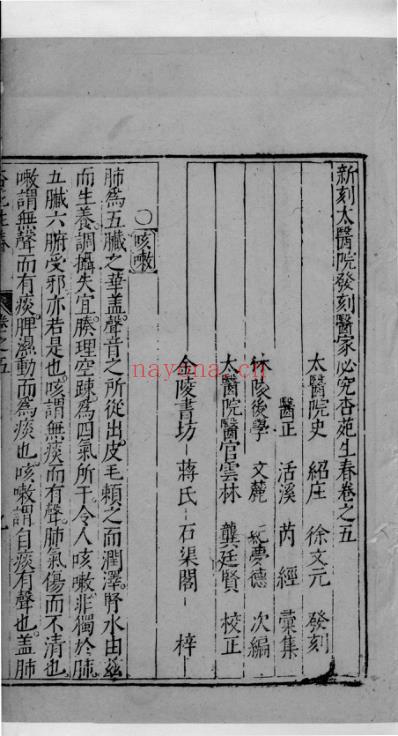 新刻太醫院發刻醫家必究杏苑生春卷之五
太醫院史 紹庄 徐文元 發刻
醫正 活溪 芮 經 彙集
林陵後學 文麓 紀夢德 次編
太醫院醫官雲林 龔廷賢 校正
金陵書坊 蔣氏 石渠閣 梓
○咳嗽
肺爲五臟之華蓋聲音之所從出皮毛賴之而潤澤腎水由兹
而生養調攝失宜腠理空疎爲四氣所干令人咳嗽非獨於肺
五臟六腑受邪亦若是也咳謂無痰而有聲肺氣傷而不清也
嗽謂無聲而有痰脾濕動而爲痰也咳嗽謂自痰有聲也盖肺
杏苑生春 卷之五
nayona.cn